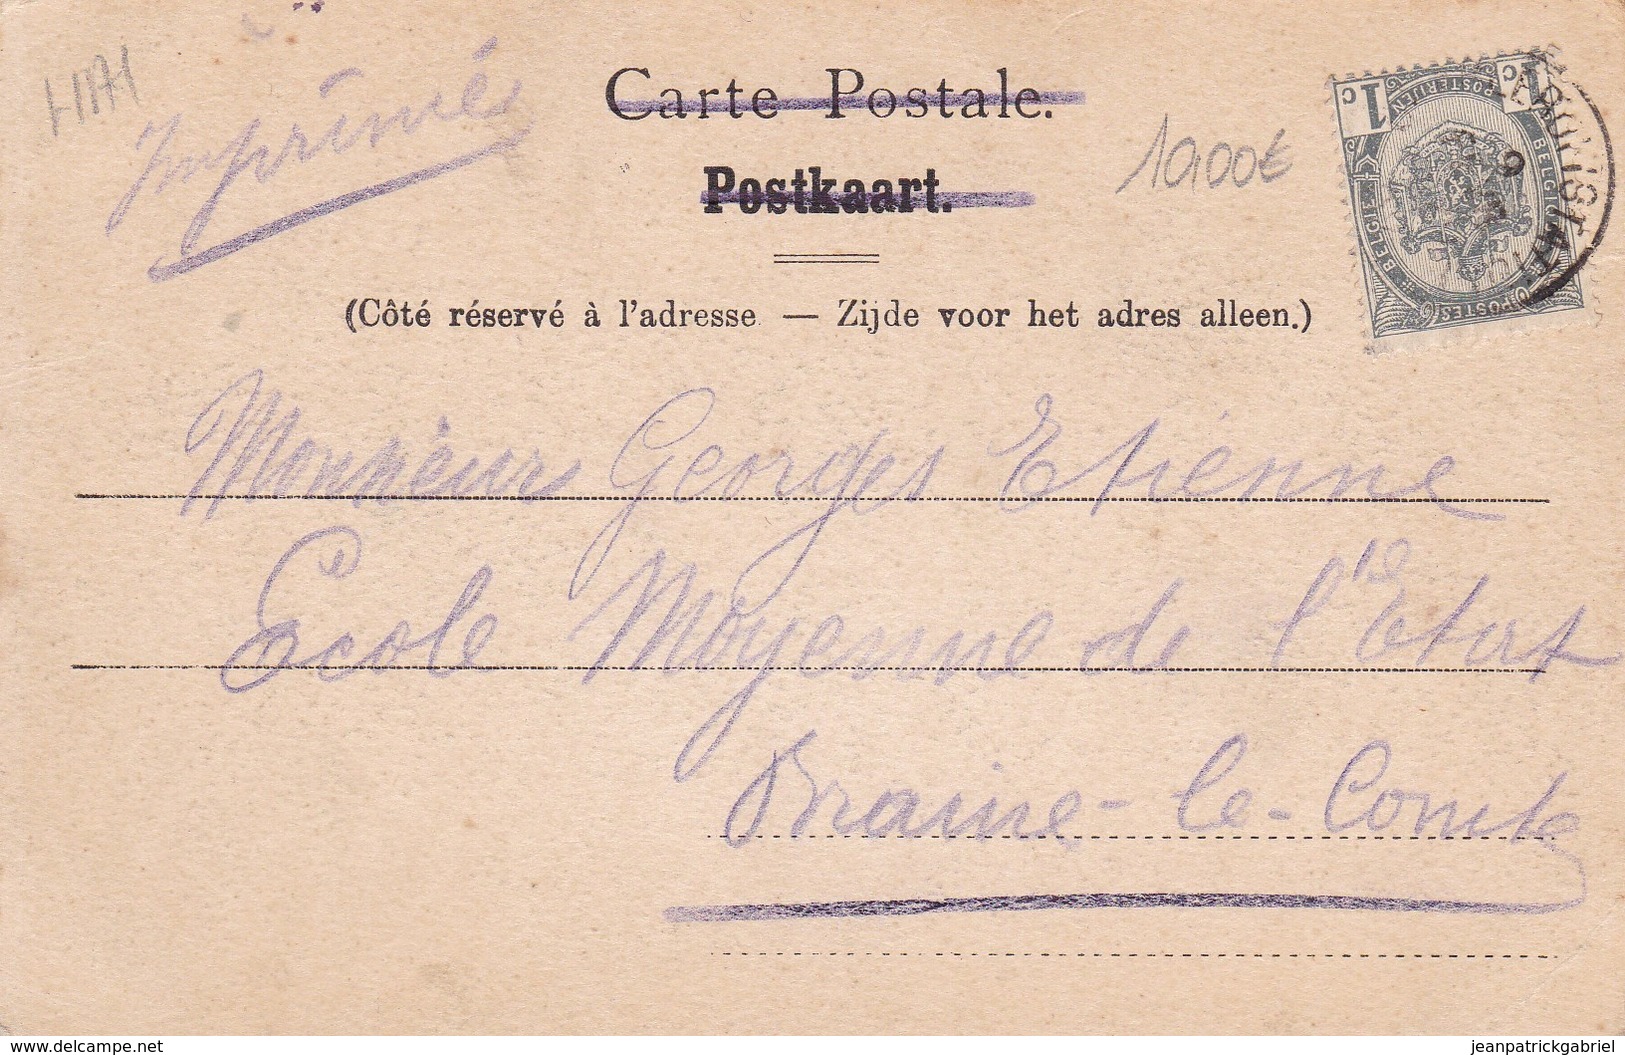 HAI
Imprimé
Carte Postale.
Postkaart.
10,00€
(Côté réservé à l'adresse. — Zijde voor het adres alleen.)
1 c 1 c
POSTERIJEN
BELGIE BELGIQUE
POSTES
9
Monsieur Georges Etienne
École Moyenne de l'Etat
Braine-le-Comte
www.delcampe.net
jeanpatrickgabriel